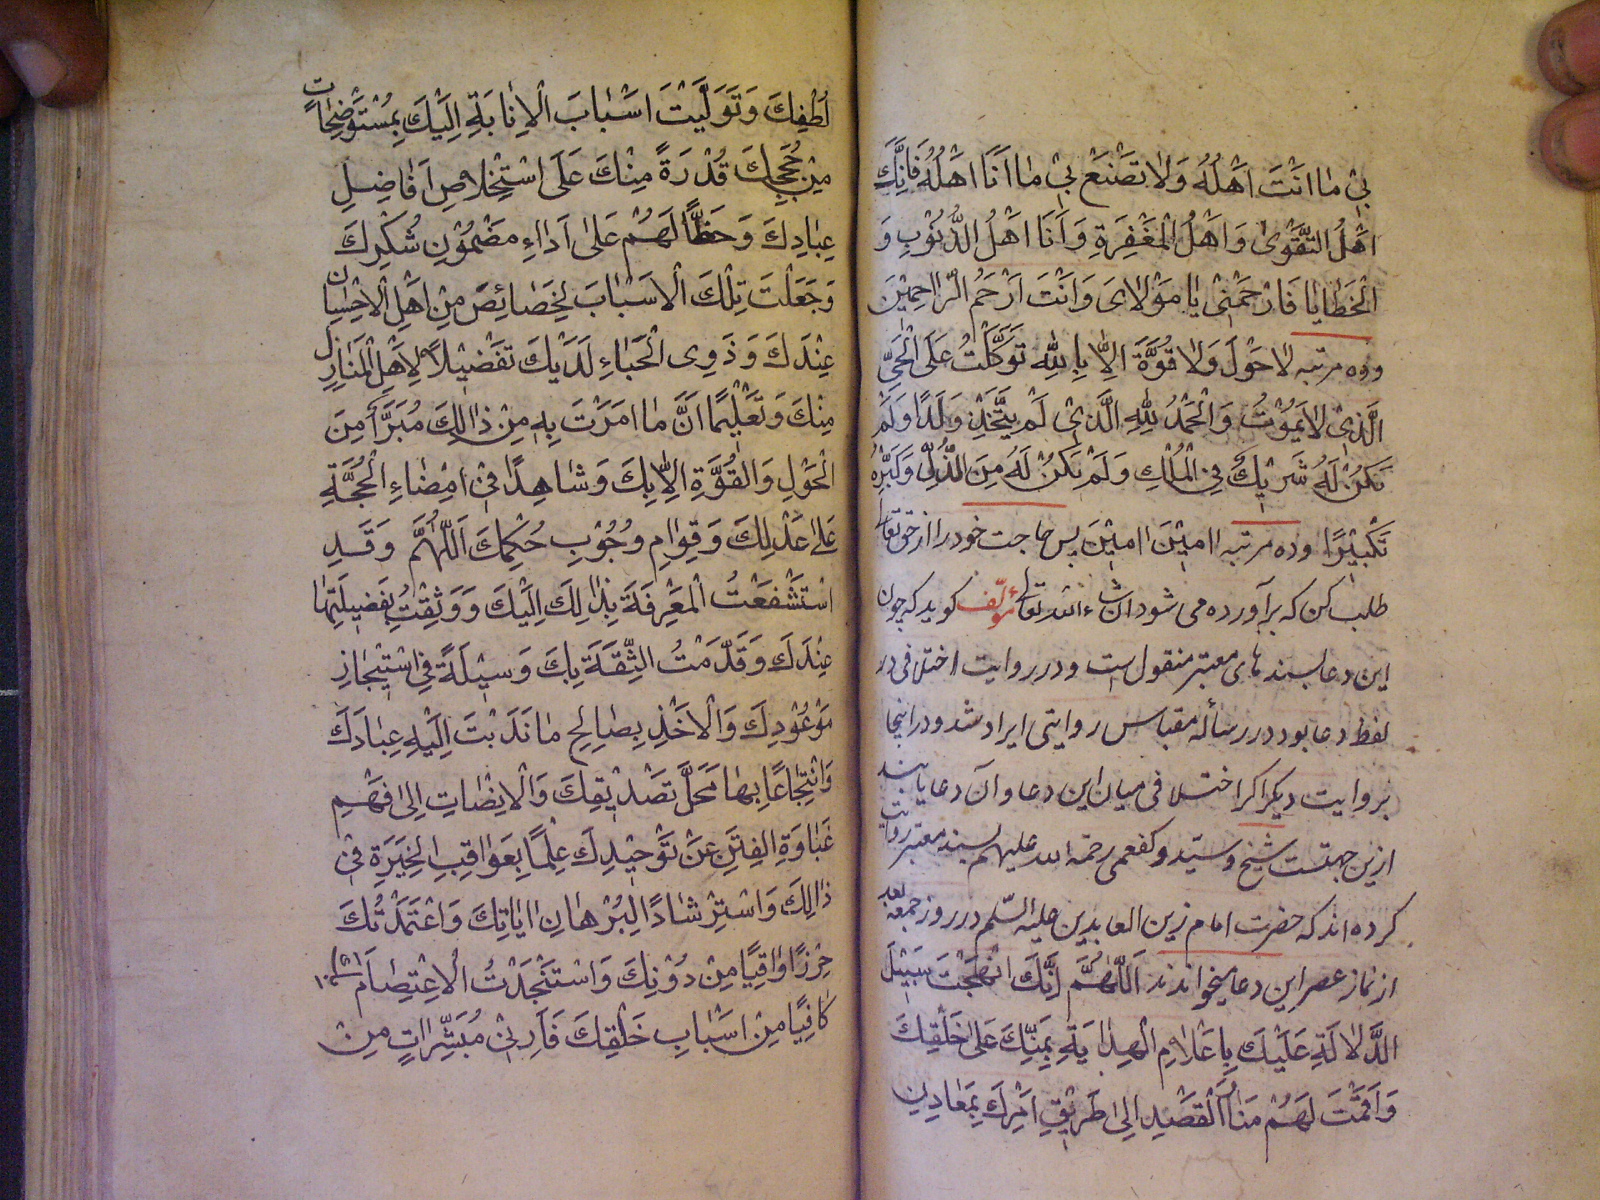 بِیْ مٰا اَنْتَ اَهْلُهُ وَلٰا تَصْنَعْ بِیْ مٰا اَنَا اَهْلُهُ فَاِنَّكَ
اَهْلُ التَّقْوٰیْ وَ اَهْلُ الْمَغْفِرَةِ وَ اَنَا اَهْلُ الذُّنُوْبِ وَ
الْخَطٰایٰا فَارْحَمْنِیْ یٰا مَوْلٰایَ وَ اَنْتَ اَرْحَمُ الرّٰاحِمِیْنَ
و ده مرتبه لٰا حَوْلَ وَلٰا قُوَّةَ اِلّٰا بِاللهِ تَوَكَّلْتُ عَلَی الْحَیِّ
الَّذِیْ لٰا یَمُوْتُ وَ الْحَمْدُ لِلّٰهِ الَّذِیْ لَمْ یَتَّخِذْ وَلَدًا وَ لَمْ
یَكُنْ لَهُ شَرِیْكٌ فِی الْمُلْكِ وَ لَمْ یَكُنْ لَهُ مِنَ الذُّلِّ وَ كَبِّرْهُ
تَكْبِیْرًا و ده مرتبه اٰمِیْنَ اٰمِیْنَ پس حاجت خود را از حق تعالی
طلب کن که برآورده می شود ان شاء الله تعالی مؤلّف کوید که چون
این دعا بسند های معتبر منقول است و در روایت اختلافی در
لفظ دعا بود در رساله مقباس روایتی ایراد شد و در اینجا
بروایت دیکر اکر اختلافی میان این دعا و آن دعا یابند
ازین جهتست شیخ و سیّد و کفعمی رحمة الله علیهم بسند معتبر روایت
کرده اند که حضرت امام زین العابدین علیه السّلم در روز جمعه بعد
از نماز عصر این دعا میخواندند اَللّٰهُمَّ اِنَّكَ انْهَجْتَ سَبِیْلَ
الدَّلٰالَةِ عَلَیْكَ بِاَعْلٰامِ الْهِدٰایَةِ بِمَنِّكَ عَلٰی خَلْقِكَ
وَ اَقَمْتَ لَهُمْ مَنٰارَ الْقَصْدِ اِلیٰ طَرِیْقِ اَمْرِكَ بِمَعٰادِنِ
لُطْفِكَ وَ تَوَلَّیْتَ اَسْبٰابَ الْاِنٰابَةِ اِلَیْكَ بِمُسْتَوْضِحٰاتٍ
مِنْ حُجَجِكَ قُدْرَةً مِنْكَ عَلَی اسْتِخْلٰاصِ اَفٰاضِلِ
عِبٰادِكَ وَ حَظًّا لَهُمْ عَلیٰ اَدٰاءِ مَضْمُوْنِ شُكْرِكَ
وَ جَعَلْتَ تِلْكَ الْاَسْبٰابَ لِخَصٰائِصَ مِنْ اَهْلِ الْاِحْسٰانِ
عِنْدَكَ وَ ذَوِی الْحَبٰاءِ لَدَیْكَ تَفْضِیْلاً لِاَهْلِ الْمَنٰازِلِ
مِنْكَ وَ تَعْلِیْمًا اَنَّ مٰا اَمَرْتَ بِهِ مِنْ ذٰالِكَ مُبَرَّأٌ مِنَ
الْحَوْلِ وَ الْقُوَّةِ اِلّٰا بِكَ وَ شٰاهِدًا فِیْ اِمْضٰاءِ الْحُجَّةِ
عَلیٰ عَدْلِكَ وَ قِوٰامِ وُجُوْبِ حُكْمِكَ اَللّٰهُمَّ وَ قَدِ
اسْتَشْفَعْتُ الْمَعْرِفَةَ بِذٰلِكَ اِلَیْكَ وَ وَثِقْتُ بِفَضِیْلَتِهٰا
عِنْدَكَ وَ قَدَّمْتُ الثِّقَةَ بِكَ وَسِیْلَةً فِی اسْتِنْجٰازِ
مَوْعُوْدِكَ وَ الْاَخْذِ بِصٰالِحِ مٰا نَدَبْتَ اِلَیْهِ عِبٰادَكَ
وَ انْتِجٰاعًا بِهٰا مَحَلَّ تَصْدِیْقِكَ وَ الْاِنْصٰاتِ اِلیٰ فَهْمِ
غَبٰاوَةِ الْفِتَنِ عَنْ تَوْحِیْدِكَ عِلْمًا بِعَوٰاقِبِ الْخِیَرَةِ فِیْ
ذٰالِكَ وَ اسْتِرْشٰادًا لِبُرْهٰانِ اٰیٰاتِكَ وَ اعْتَمَدْتُكَ
حِرْزًا وٰاقِیًا مِنْ دُوْنِكَ وَ اسْتَنْجَدْتُ الْاِعْتِصٰامَ
كٰافِیًا مِنْ اَسْبٰابِ خَلْقِكَ فَاَرِنِیْ مُبَشِّرٰاتٍ مِنْ